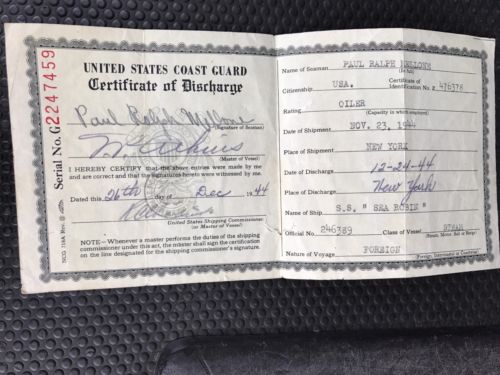 Serial No. G 2247459
NCG 718A Rev.
UNITED STATES COAST GUARD
Certificate of Discharge
Paul Ralph Mellone
(Signature of Seaman)
(Master of Vessel)
I HEREBY CERTIFY that the above entries were made by me
and are correct and that the signatures hereto were witnessed by me.
Dated this 26th day of Dec 1944
United States Shipping Commissioner
(or Master of Vessel)
NOTE—Whenever a master performs the duties of the shipping
commissioner under this act, the master shall sign the certification
on the line designated for the shipping commissioner's signature.
Name of Seaman PAUL RALPH MELLONE
(In full)
Citizenship USA. Certificate of Identification No. Z 476378
Rating OILER
(Capacity in which employed)
Date of Shipment NOV. 23, 1944
Place of Shipment NEW YORK
Date of Discharge 12-24-44
Place of Discharge New York
Name of Ship S.S. "SEA ROBIN"
Official No. 246389 Class of Vessel STEAM
(Steam, Motor, Sail or Barge)
Nature of Voyage FOREIGN
(Foreign, Intercoastal or Coastwise)